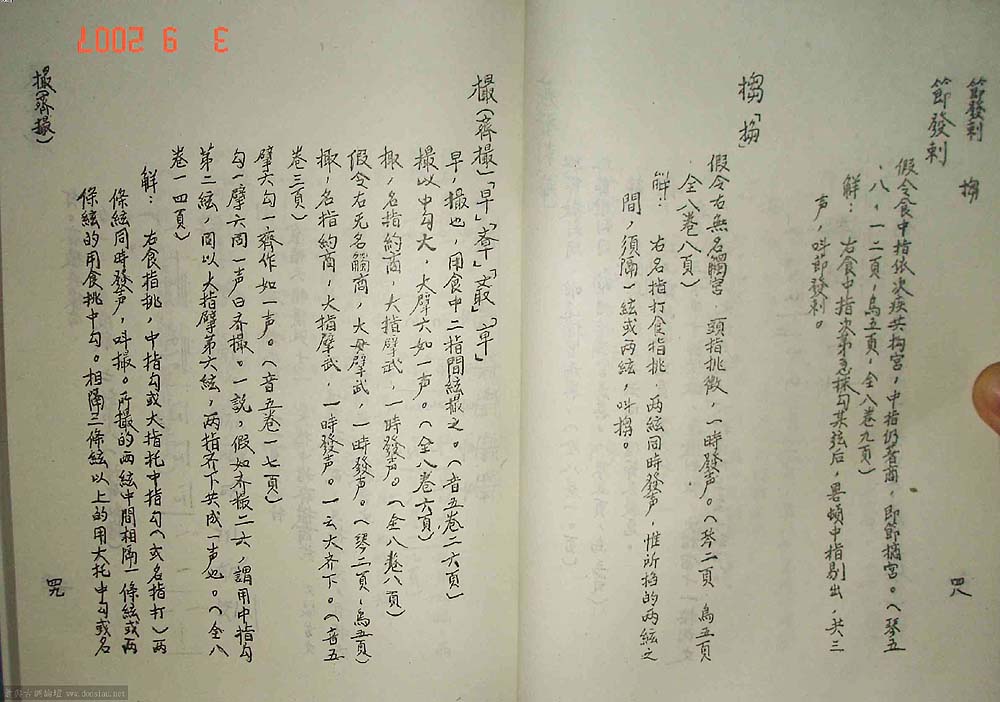 節發刺 搊
節發刺
假令食中指依次疾共拘宮，中指仍著商，即節摘宮。（琴五
八，一二頁，烏五頁，全八卷九頁）
解：右食中指次第急抹勾某弦后，畧頓中指剔出，共三
声，叫節發刺。
搊「搊」
假令右無名觸宮，頭指挑徵，一時發声。（琴二頁 烏五頁
全八卷八頁）
解：右名指打食指挑，两絃同時發声，惟所掐的两絃之
間，須隔一絃或两絃，叫搊。
四八
撮（齊撮）「早」「」「」「」
早，撮也，用食中二指間絃撮之。（音五卷二六頁）
撮以中勾大，大擘六如一声。（全八卷六頁）
掫，名指約商，大指擘武，一時發声。（全八卷八頁）
假令右无名觸商，大母擘武，一時發声。（琴二頁，烏五頁）
掫，名指約商，大指擘武，一時發声。一云大齐下。（音五
卷三頁）
擘六勾一齊作如一声。（音五卷一七頁）
勾一擘六同一声曰齐撮。一説，假如齐撮二六，謂用中指勾
第二絃，同以大指擘第六絃，两指齐下共成一声也。（全八
卷一四頁）
解：右食指挑，中指勾或大指托中指勾（或名指打）两
條絃同時發声，叫撮。所撮的两絃中間相隔一條絃或两
條絃的用食挑中勾。相隔三條絃以上的用大托中勾或名
撮（齊撮）
四九
3 9 2007
www.doosiau.net